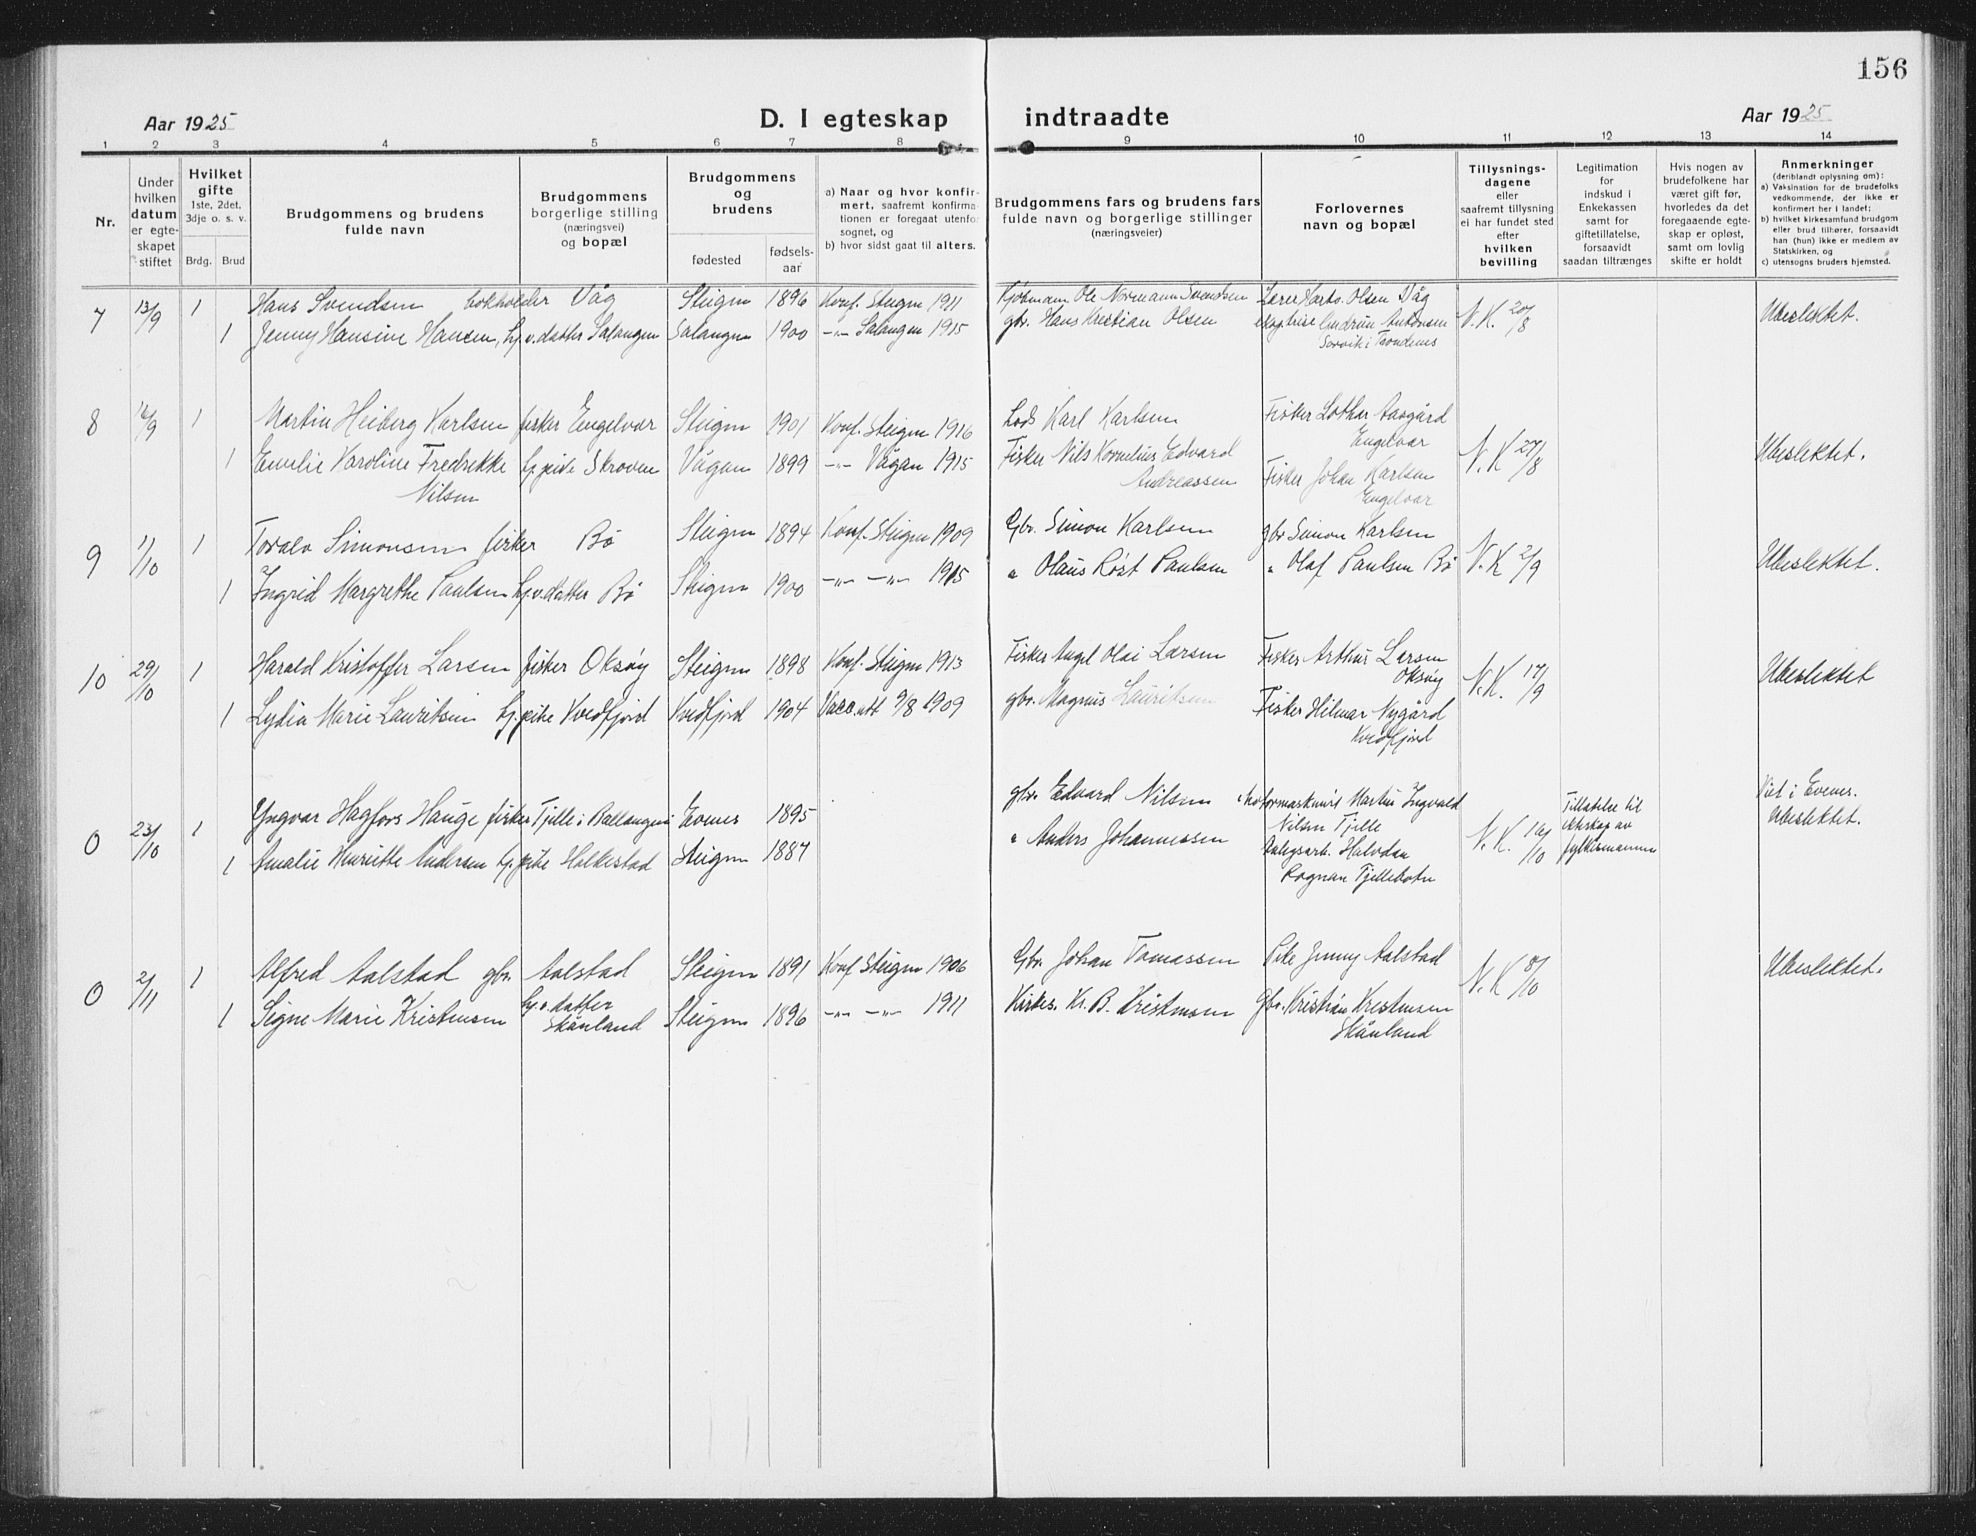 156
Aar 1925 D. I egteskap indtraadte Aar 1925
1 2 3 4 5 6 7 8 9 10 11 12 13 14
Nr.
Under hvilken datum er egte- skapet stiftet
Hvilket gifte 1ste, 2det, 3dje o. s. v.
Brdg. Brud
Brudgommens og brudens fulde navn
Brudgommens borgerlige stilling (næringsvei) og bopæl
Brudgommens og brudens
fødested fødsels- aar
a) Naar og hvor konfir- mert, saafremt konfirma- tionen er foregaat utenfor sognet, og
b) hvor sidst gaat til alters.
Brudgommens fars og brudens fars fulde navn og borgerlige stillinger (næringsveier)
Forlovernes navn og bopæl
Tillysnings- dagene eller saafremt tillysning ei har fundet sted efter hvilken bevilling
Legitimation for indskud i Enkekassen samt for giftetillatelse, forsaavidt saadan tiltrænges
Hvis nogen av brudefolkene har været gift før, hvorledes da det foregaaende egte- skap er opløst, samt om lovlig skifte er holdt
Anmerkninger (deriblandt oplysning om):
a) Vaksination for de brudefolks vedkommende, der ikke er konfirmert her i landet;
b) hvilket kirkesamfund brudgom eller brud tilhører, forsaavidt han (hun) ikke er medlem av Statskirken, og
c) utensogns bruders hjemsted.
7 13/9 1 Hans Svendsen bokholder Våg Steigen 1896 Konf. Steigen 1911 Kjøbmann Ole Normann Svendsen Lærer Olsen Våg N.K. 20/8 Ubeslektet.
1 Jenny Hansine Hansen, hj.v. datter Salangen Salangen 1900 -"- Salangen 1915 gbr. Hans Kristian Olsen Antonsen
Sørvik i Trondenes
8 /9 1 Martin Heiberg Karlsen fisker Engelvær Steigen 1901 Konf. Steigen 1916 Lods Karl Karlsen Fisker Lothar Aasgård
Engelvær
1 Emilie Karoline Fredrekke Nilsen hj. pike Skroven Vågan 1899 -"- Vågan 1915 Fisker Nils Kornelius Edvard Andreassen Fisker Johan Karlsen Engelvær N.K 27/8 Ubeslektet.
9 11/10 1 Toralv Simonsen fisker Bø Steigen 1894 Konf. Steigen 1909 Gbr. Simon Karlsen gbr Simon Karlsen N.K 2/9 Ubeslektet.
1 Ingrid Margrethe Paulsen hj.v. datter Bø Steigen 1900 -"- -"- 1915 " Olaus Røst Paulsen " Olaf Paulsen Bø
10 29/10 1 Harald Kristoffer Larsen fisker Oksøy Steigen 1898 Konf. Steigen 1913 Fisker Angel Olai Larsen Fisker Arthur Larsen Oksøy N.K. 17/9 Ubeslektet
1 Lydia Marie Lauritsen hj. pike Kvedfjord Kvedfjord 1904 Vacc. att 9/8 1909 gbr. Magnus Lauritsen Fisker Hilmar Nygård
Kvedfjord
0 23/10 1 Yngvar Hagfors Hauge fisker Tjelle i Ballangen Evenes 1895 gbr. Edvard Nilsen Martin Ingvald Nilsen Tjelle N.K. /10 Tillatelse til ekteskap av fylkesmannen Viet i Evenes. Ubeslektet.
1 Amalie Henriette Andersen hj. pike Holkestad Steigen 1887 " Anders Johannessen Anlegsarb. Halvdan
Rognan Tjellebotn
0 2/11 1 Alfred Aalstad gbr. Aalstad Steigen 1891 Konf Steigen 1906 Gbr. Johan Tomassen Pike Jenny Aalstad N.K 8/10 Ubeslektet.
1 Signe Marie Kristensen hj.v. datter Skånland Steigen 1896 -"- -"- 1911 Kirkes. Kr. B. Kristensen Gbr. Kristian Kristensen
Skånland